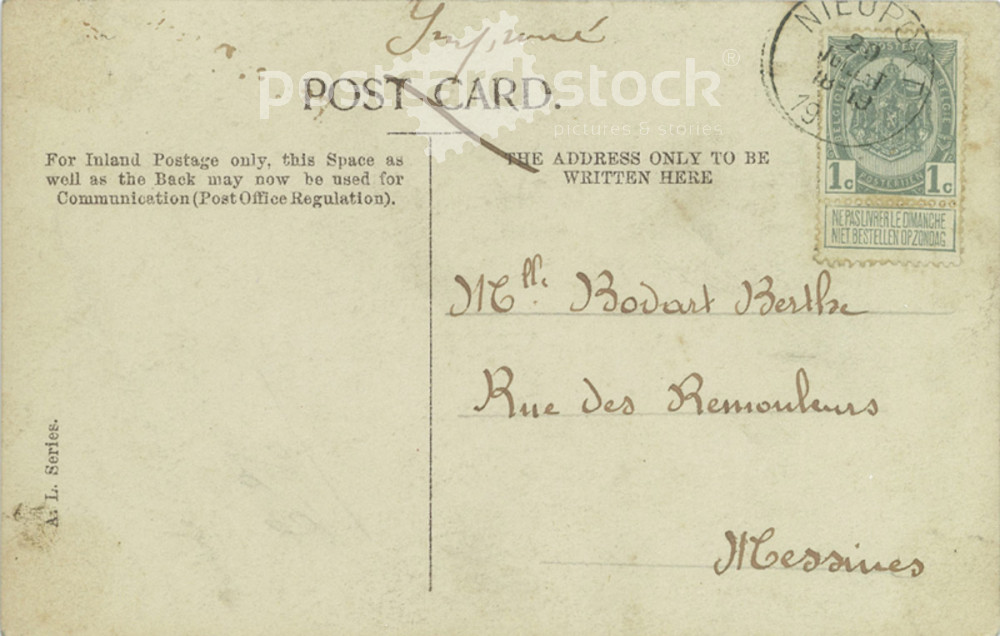 Imprimé
POST CARD.
postcardstock®
pictures & stories
For Inland Postage only, this Space as
well as the Back may now be used for
Communication (Post Office Regulation).
THE ADDRESS ONLY TO BE
WRITTEN HERE
NIEUPO
20
19
1c 1c
POSTERIJEN
NE PAS LIVRER LE DIMANCHE
NIET BESTELLEN OP ZONDAG
Mlle. Bodart Berthe
Rue des Remouleurs
Messines
A. L. Series.